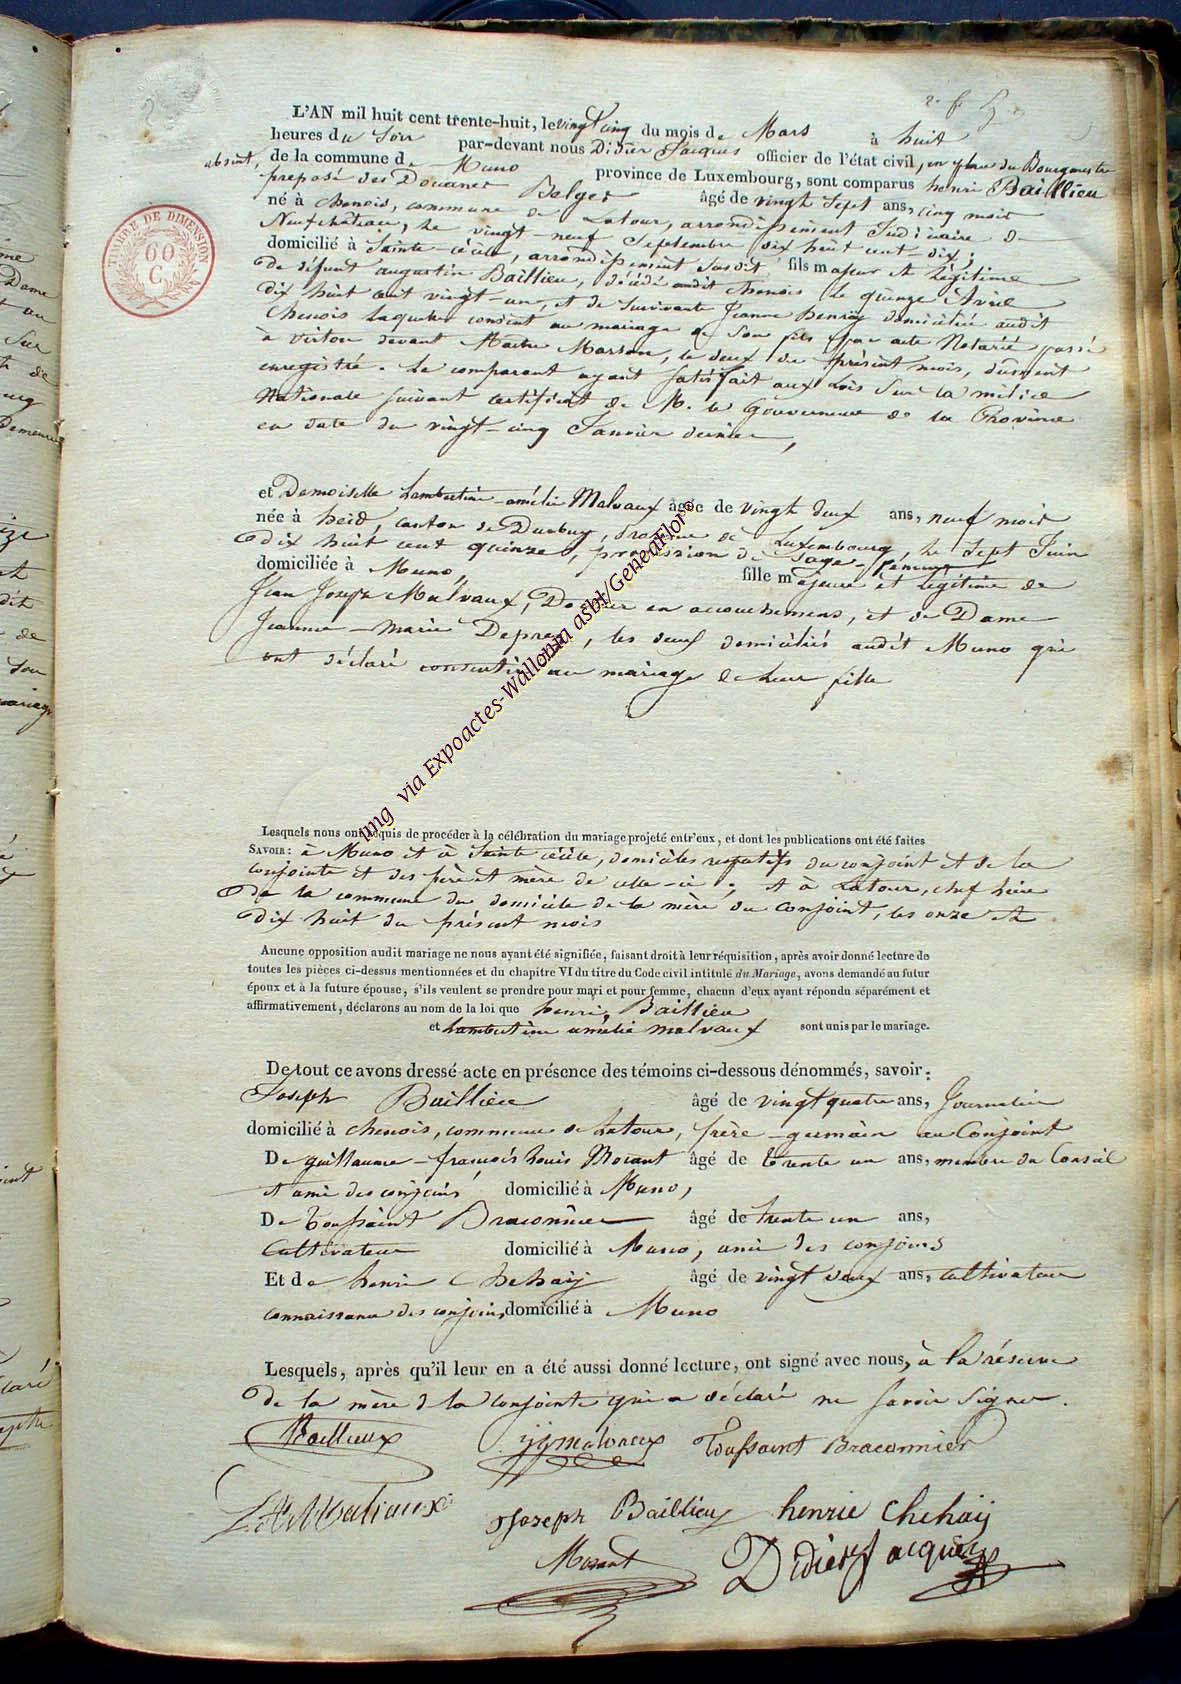 L'AN mil huit cent trente-huit, le vingt cinq du mois de Mars à huit
heures du soir par-devant nous Didier Jacques officier de l'état civil, en place du Bourgmestre
absent, de la commune de Muno province de Luxembourg, sont comparus henri Baillieu
preposé des Douanes Belges âgé de vingt sept ans, cinq mois
né à Chenois, commune de Latour, arrondissement Judiciaire de
Neufchâteau, le vingt-neuf Septembre dix huit cent-dix;
domicilié à Sainte-cécile, arrondissement susdit fils majeur et légitime
de défunt augustin Baillieu, décédé audit chenois le quinze Avril
dix huit cent vingt-un, et de survivante Jeanne henry domiciliée audit
Chenois laquelle consent au mariage de son fils par acte Notarié passé
à Virton devant Maitre Marson, le deux du présent mois, dument
enregistré. Le comparant ayant satisfait aux lois sur la milice
Nationale suivant certificat de M. le Gouverneur de la Province
en date du vingt-cinq Janvier dernier,
et Demoiselle Lambertine-amélie Malvaux âgée de vingt deux ans, neuf mois
née à heid, canton de Durbuy, province de Luxembourg, le Sept Juin
dix huit cent quinze, profession de Sage-femme
domiciliée à Muno, fille majeure et légitime de
Jean Joseph Malvaux, Docteur en accouchemens, et de Dame
Jeanne-Marie Deprez, les deux domiciliés audit Muno qui
ont déclaré consentir au mariage de leur fille
img via Expoactes-Wallonia asbl/GeneaFlor©
Lesquels nous ont requis de procéder à la célébration du mariage projeté entr'eux, et dont les publications ont été faites
SAVOIR: à Muno et à Sainte cécile, domiciles respectifs du conjoint et de la
conjointe et des père et mère de celle-ci; et à Latour, chef lieu
de la commune du domicile de la mère du Conjoint, les onze et
dix huit du présent mois
Aucune opposition audit mariage ne nous ayant été signifiée, faisant droit à leur réquisition, après avoir donné lecture de
toutes les pièces ci-dessus mentionnées et du chapitre VI du titre du Code civil intitulé du Mariage, avons demandé au futur
époux et à la future épouse, s'ils veulent se prendre pour mari et pour femme, chacun d'eux ayant répondu séparément et
affirmativement, déclarons au nom de la loi que henri, Baillieu
et Lambertine amélie malvaux sont unis par le mariage.
De tout ce avons dressé acte en présence des témoins ci-dessous dénommés, savoir:
Joseph Baillieu âgé de vingt quatre ans, Journalier
domicilié à chenois, commune de Latour, frère-germain au Conjoint
De guillaume-françois Louis Morant âgé de trente un ans, membre du Conseil
et ami des conjoins domicilié à Muno,
De Toussaint Braconnier âgé de trente un ans,
Cultivateur domicilié à Muno, ami des conjoins
Et de henri Chehaij âgé de vingt deux ans, cultivateur
connaissance des conjoins, domicilié à Muno
Lesquels, après qu'il leur en a été aussi donné lecture, ont signé avec nous, à la réserve
de la mère de la Conjointe qui a déclaré ne savoir signer.
Baillieux jjmalvaux Toussaint Braconnier
L A Malvaux Joseph Baillieu henrie Chehaij
Morant Didier Jacques
TIMBRE DE DIMENSION
60
C.